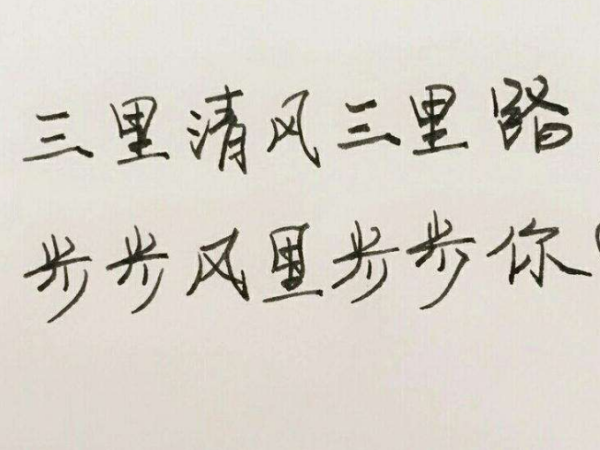 三里清风三里路
步步风里步步你